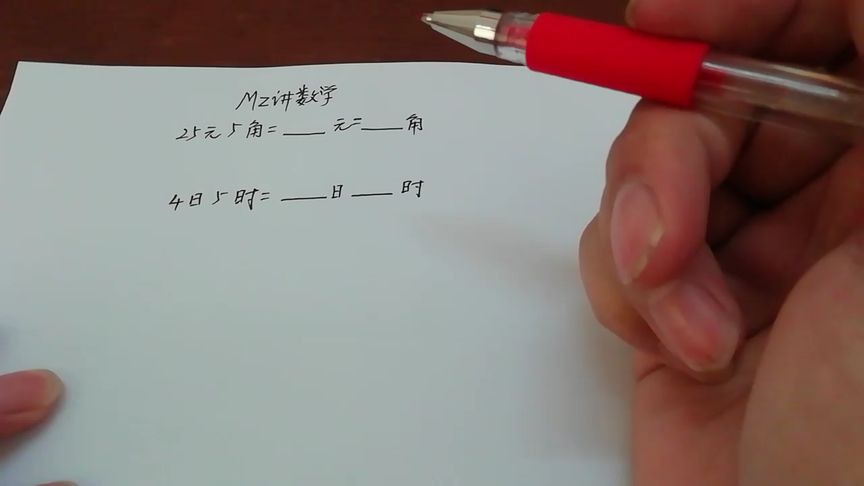 MZ讲数学
25元5角=____元=____角
4日5时=____日____时